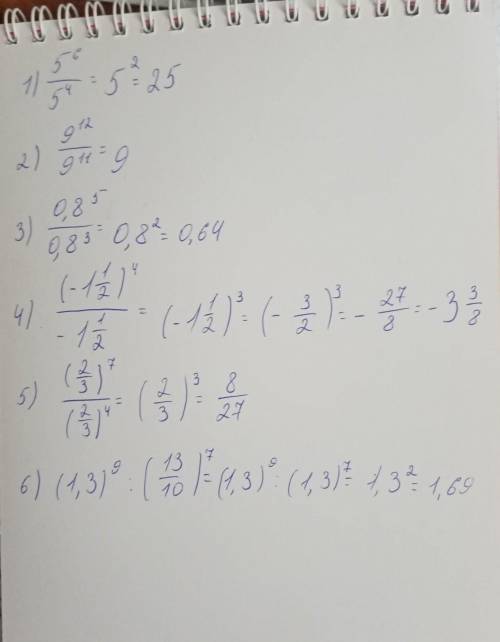 1) 5⁶/5⁴ = 5² = 25
2) 9¹²/9¹¹ = 9
3) 0,8⁵/0,8³ = 0,8² = 0,64
4) (-1 1/2)⁴/-1 1/2 = (-1 1/2)³ = (- 3/2)³ = - 27/8 = -3 3/8
5) (2/3)⁷/(2/3)⁴ = (2/3)³ = 8/27
6) (1,3)⁹ : (13/10)⁷ = (1,3)⁹ : (1,3)⁷ = 1,3² = 1,69